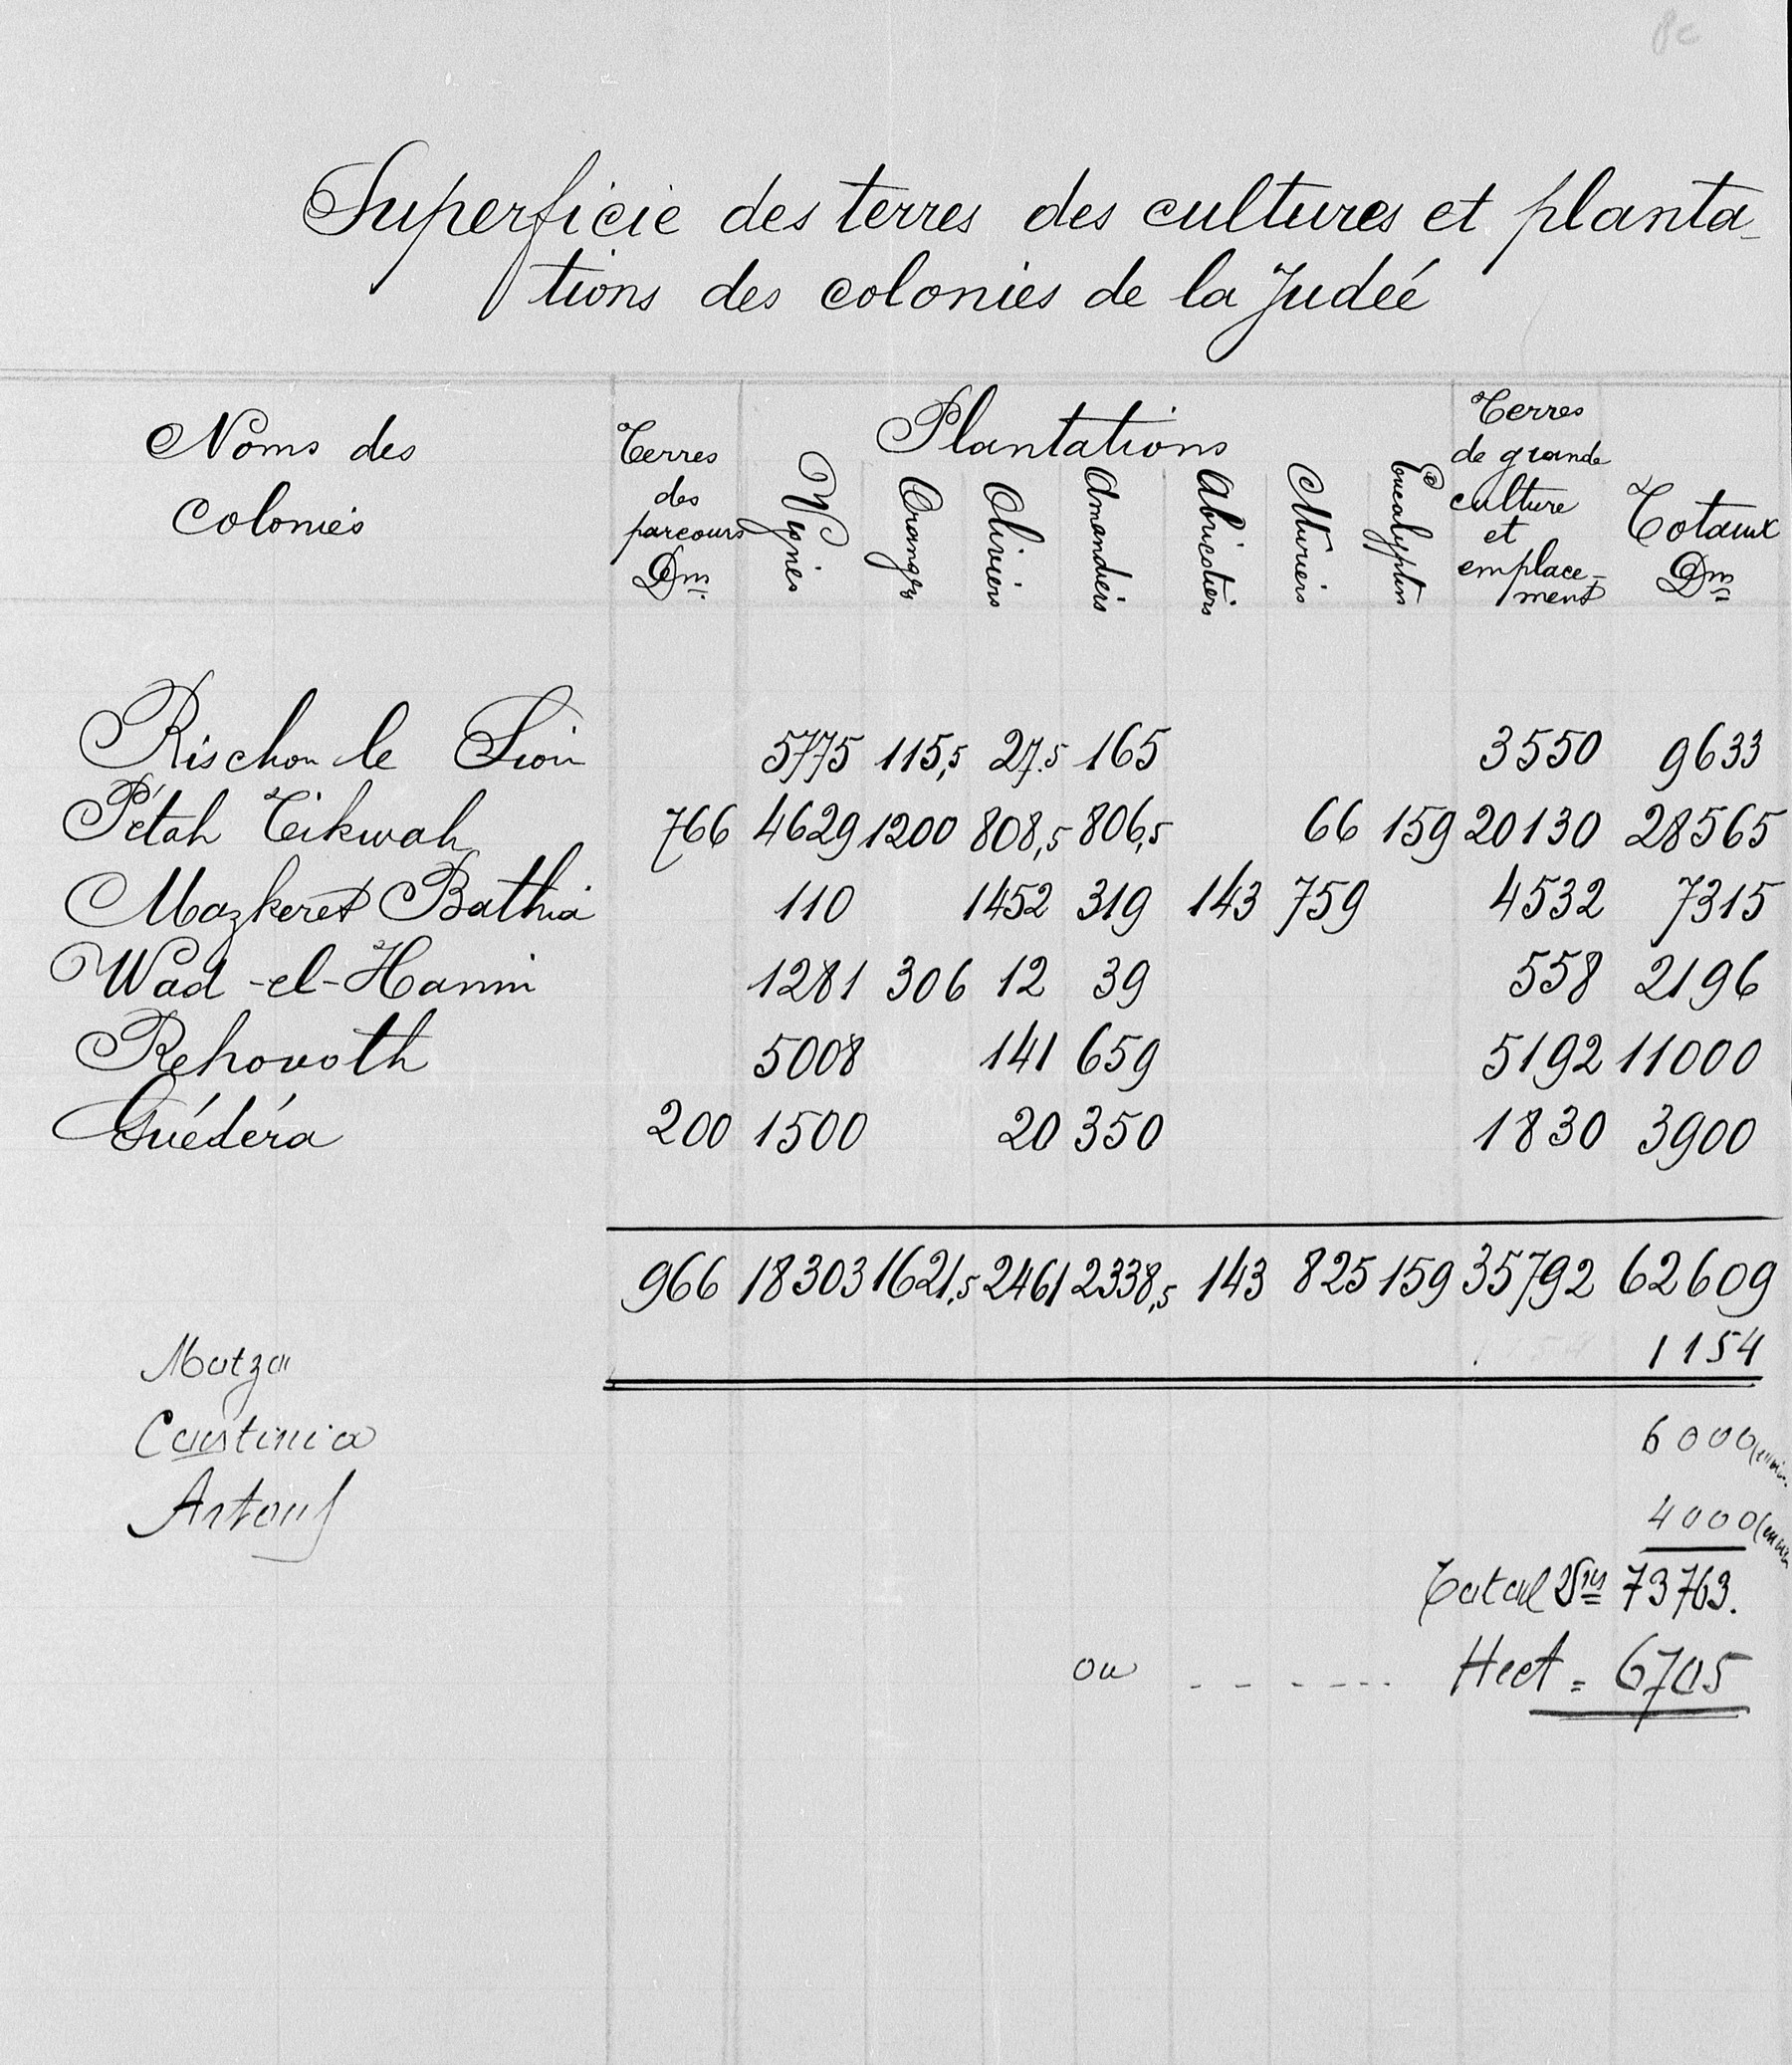 Superficie des terres des cultures et planta-
tions des colonies de la Judéé
Noms des
Colonies
Terres
des
parcours
Dm
Plantations
Vignes
Orangrs
Oliviers
Amandiers
Abricotiers
Muriers
Eucalyptus
Terres
de grande
culture
et
emplace-
ment
Totaux
Dm
Rischon le Sion 5775 115,5 27,5 165 3550 9633
Pétah Tikwah 766 4629 1200 808,5 806,5 66 159 20130 28565
Mazkeret Bathia 110 1452 319 143 759 4532 7315
Wad-el-Hanin 1281 306 12 39 558 2196
Rehovoth 5008 141 659 5192 11000
Guédéra 200 1500 20 350 1830 3900
966 18303 1621,5 2461 2338,5 143 825 159 35792 62609
Motza 1154
Castinia 6000 (environ
Artouf 4000 (environ
Total Dms 73763.
ou - - - - - - Hect = 6705